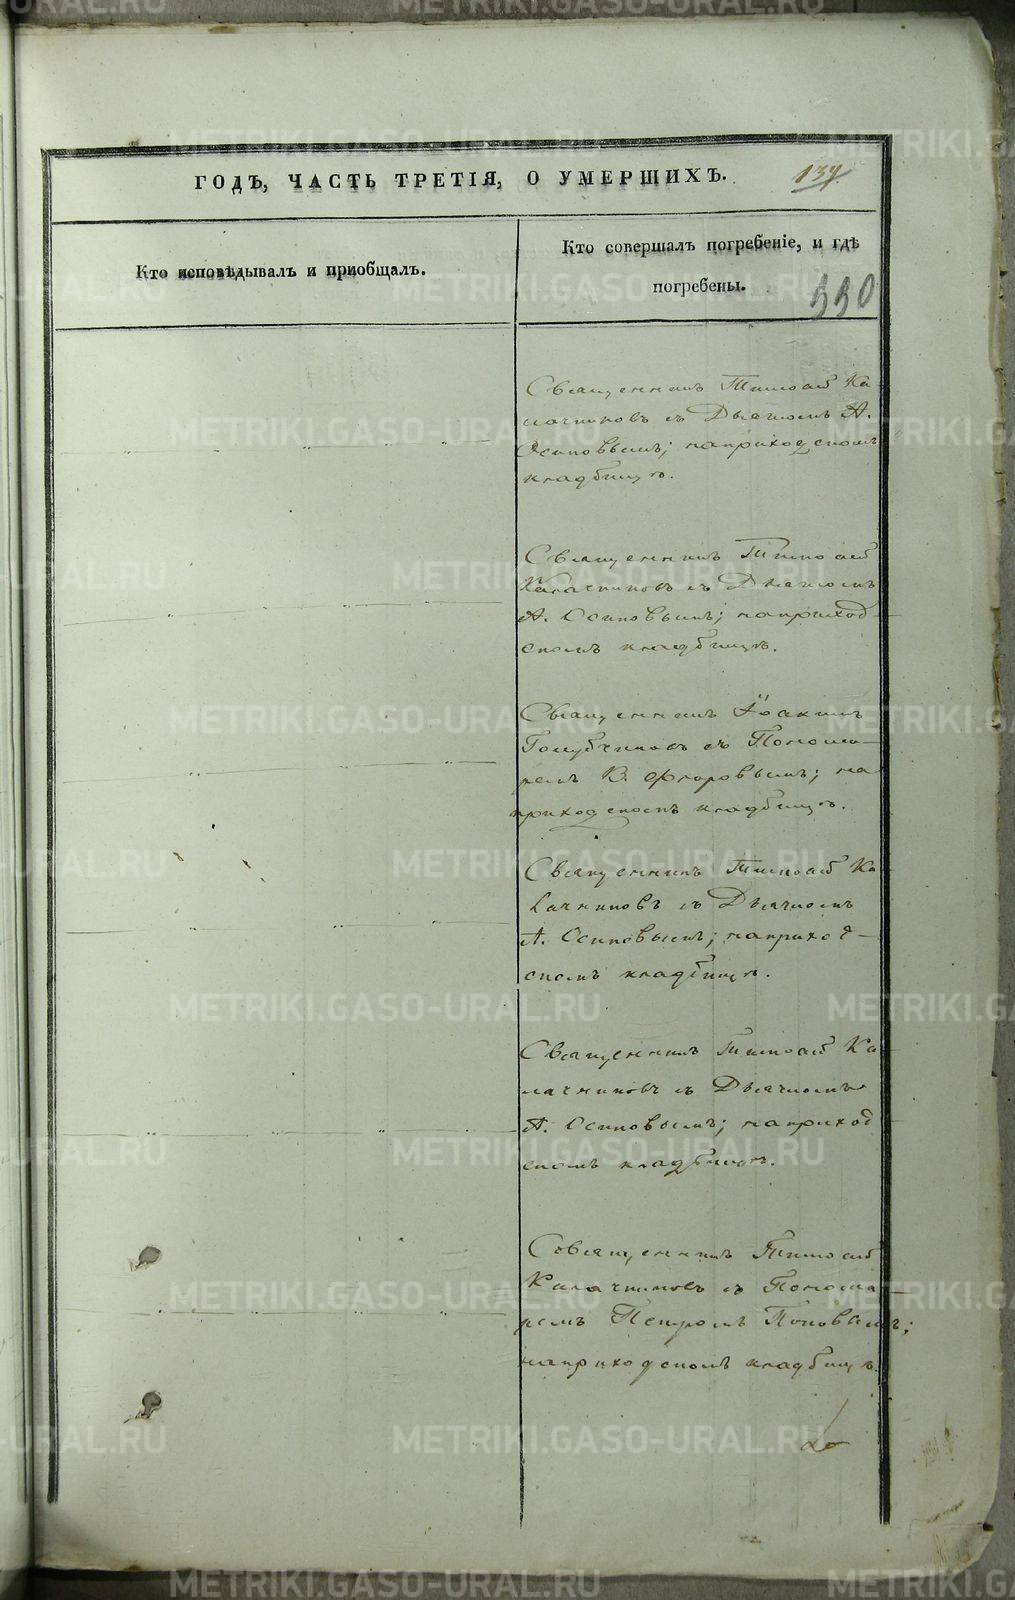 ГОДЪ, ЧАСТЬ ТРЕТІЯ, О УМЕРШИХЪ.
137
Кто исповѣдывалъ и приобщалъ.
Кто совершалъ погребеніе, и гдѣ
погребены.
330
Священникъ Тимоѳей Ка
лачниковъ съ Дьячкомъ А.
Осиповымъ; на приходскомъ
кладбищѣ.
Священникъ Тимоѳей
Калачниковъ съ Дьячкомъ
А. Осиповымъ; на приход
скомъ кладбищѣ.
Священникъ Іоакимъ
Голубчиковъ съ Понома-
ремъ В. Флоровымъ; на
приходскомъ кладбищѣ.
Священникъ Тимоѳей Ка
лачниковъ съ Дьячкомъ
А. Осиповымъ; на приход-
скомъ кладбищѣ.
Священникъ Тимоѳей Ка
лачниковъ съ Дьячкомъ
А. Осиповымъ; на приход
скомъ кладбищѣ.
Священникъ Тимоѳей
Калачниковъ съ Понома-
ремъ Петромъ Поповымъ;
на приходскомъ кладбищѣ.
METRIKI.GASO-URAL.RU